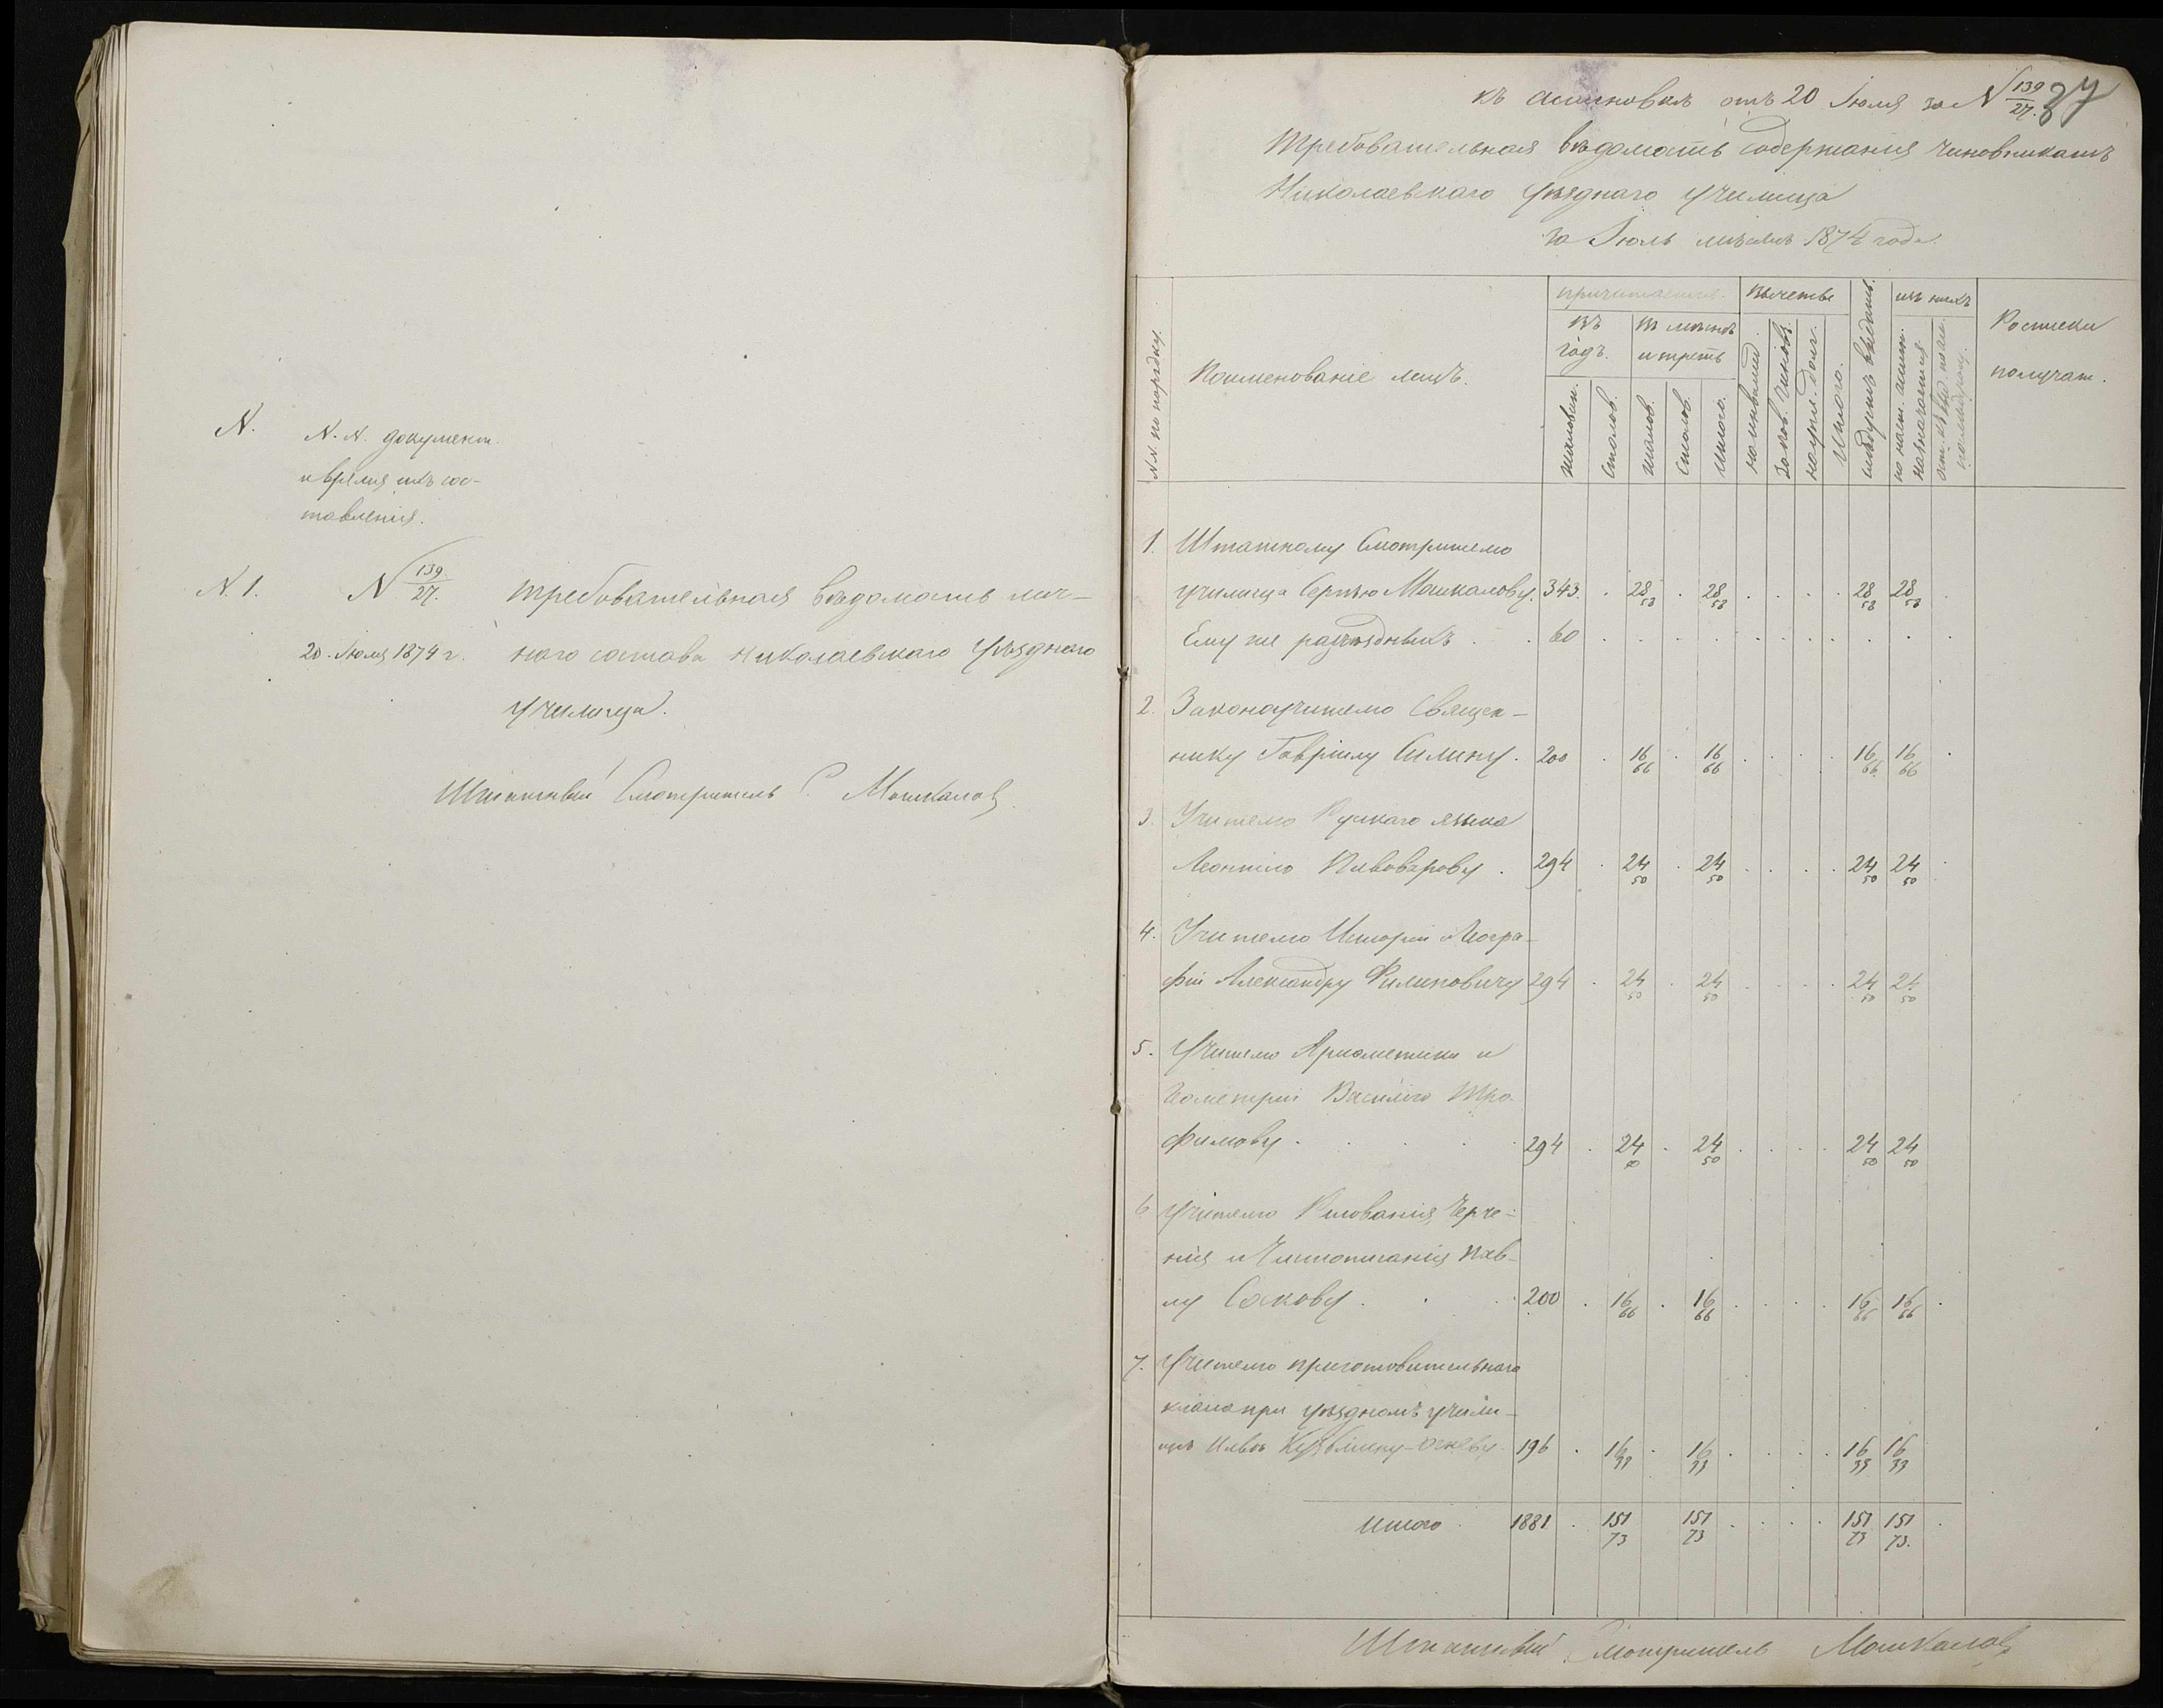 N.
N. N. документ.
и время ихъ сос-
тавленія.
N. 1.
N 139/27.
20. Іюля 1874 г.
Требовательная вѣдомость лич-
наго состава Николаевскаго Уѣзднаго
Училища.
Штатный Смотритель С. Машкалов
37
къ ассигновкѣ отъ 20 Іюля за N 139/27.
Требовательная вѣдомость содержанія чиновникамъ
Николаевскаго Уѣзднаго Училища
за Іюль мѣсяцъ 1874 года.
N.N. по порядку.
Поименованіе лицъ.
причитается.
въ годъ.
въ мѣсяцъ и треть
жалован.
столов.
жалов.
столов.
итого.
вычеты
итого.
слѣдуетъ выдать.
изъ нихъ
по наст. ассиг. назначается.
Росписки
получат.
1. Штатному Смотрителю
училища Сергѣю Машкалову. 343. . 28 58 . 28 58 . . . . 28 58 28 58 .
Ему же разъѣздныхъ . . 60 . . . . . . . . . . .
2. Законоучителю Священ-
нику Гавріилу Силину. 200 . 16 66 . 16 66 . . . . 16 66 16 66 .
3. Учителю Русскаго языка
Леонтію Пивоварову . 294 . 24 50 . 24 50 . . . . 24 50 24 50 .
4. Учителю Исторіи и Геогра-
фіи Александру Филиповичу 294 . 24 50 . 24 50 . . . . 24 50 24 50
5. Учителю Ариѳметики и
Геометріи Василію Тро-
фимову . . . . 294 . 24 50 . 24 50 . . . . 24 50 24 50
6 Учителю Рисованія, Черче-
нія и Чистописанія Пав-
лу Сокову . . . 200 . 16 66 . 16 66 . . . . 16 66 16 66 .
7. Учителю приготовительнаго
класса при уѣздномъ учили-
щѣ 196 . 16 33 . 16 33 . . . . 16 33 16 33
Итого . 1881 . 151 73 151 73 . . . . 151 73 151 73. .
Штатный Смотритель Машкалов